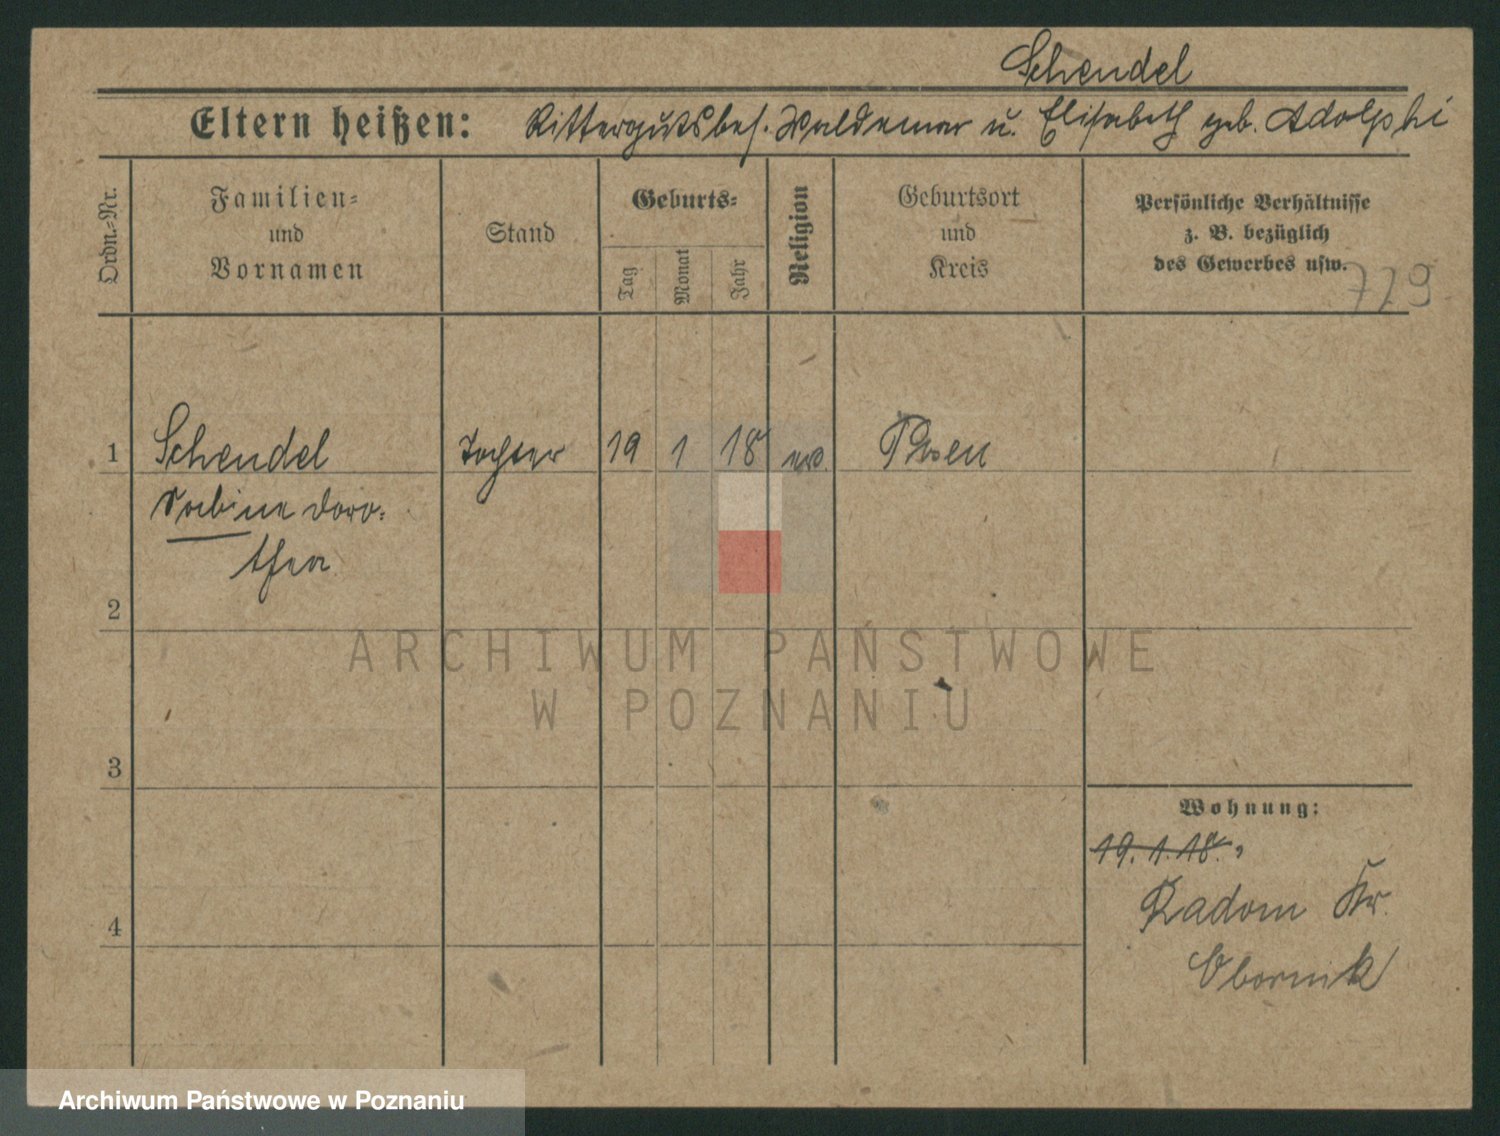 Schendel
Eltern heißen: Rittergutsbes. Waldemar u. Elisabeth geb. Adolphi
Ordn.-Nr.
Familien-
und
Vornamen
Stand
Geburts-
Tag
Monat
Jahr
Religion
Geburtsort
und
Kreis
Persönliche Verhältnisse
z. B. bezüglich
des Gewerbes usw.
729
1 Schendel Tochter 19 1 18 Posen
Sabine Doro-
thea
2
ARCHIWUM PAŃSTWOWE
W POZNANIU
3
Wohnung:
19. 1. 18.
Radom Kr.
4
Obornik
Archiwum Państwowe w Poznaniu